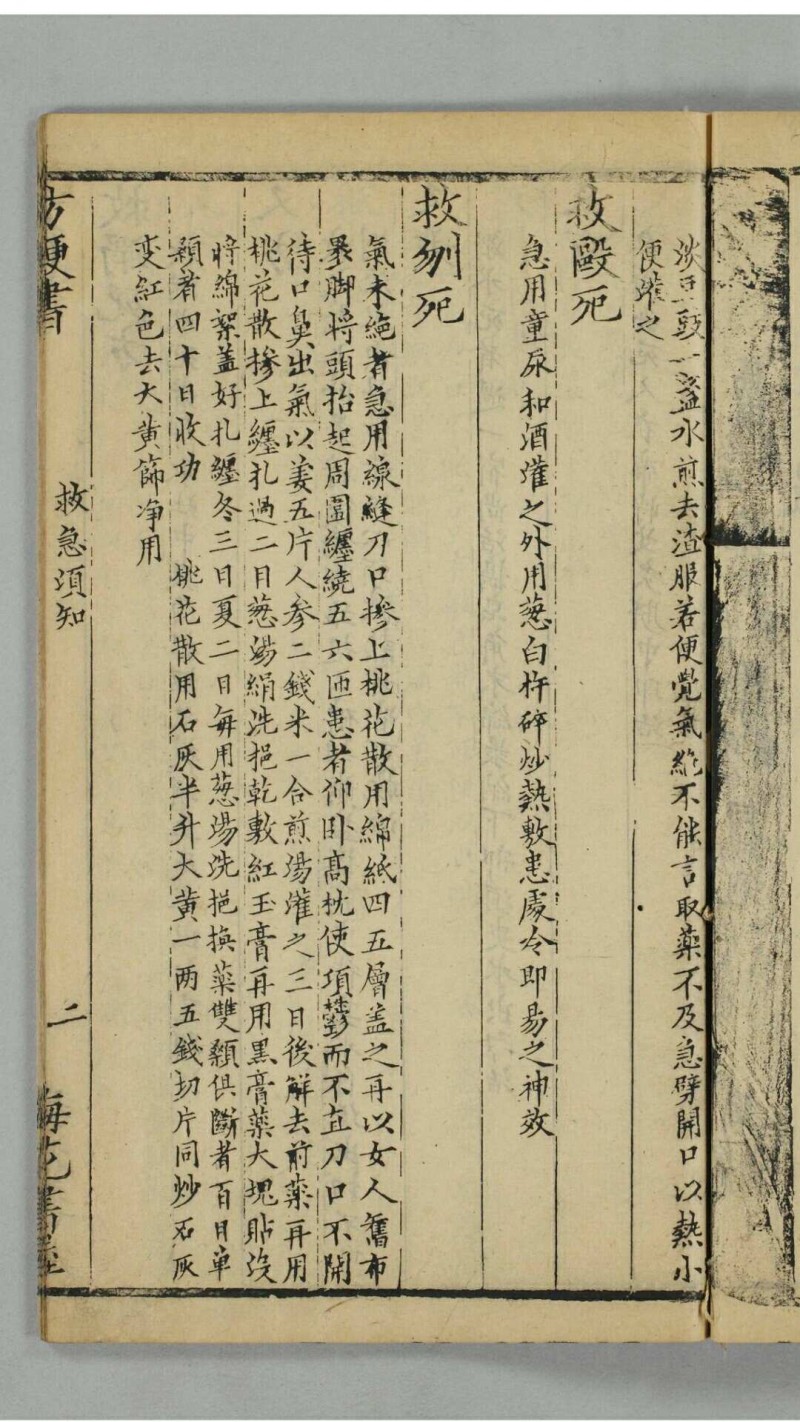 淡豆豉一盞水煎去渣服若便覺氣絶不能言取藥不及急劈開口以熱小
便灌之
救毆死
急用童尿和酒灌之外用葱白杵碎炒熱敷患處冷即易之神效
救刎死
氣未絶者急用線縫刀口摻上桃花散用綿紙四五層盖之再以女人舊布
裹脚將頭抬起周圍纏繞五六匝患者仰卧髙枕使項欝而不直刀口不開
待口鼻出氣以姜五片人参二錢米一合煎湯灌之三日後解去前藥再用
桃花散摻上纏扎過二日葱湯絹洗挹乾敷紅玉膏再用黒膏藥大塊貼後
將綿絮盖好扎纏冬三日夏二日每用葱湯洗挹換藥雙顙俱斷者百日單
顙者四十日收功 桃花散用石灰半升大黄一两五錢切片同炒石灰
变紅色去大黄篩净用
方便書 救急須知 二 梅花書屋